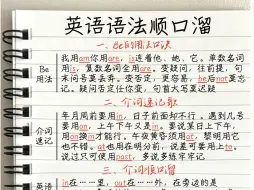 英语语法顺口溜
一、Be的用法口诀
Be
用法
我用am你用are,is连着他、她、它。单数名词
用is,复数名词全用are。变疑问,往前提,句
末问号莫丢弃。变否定,更容易,be后not莫忘
记。疑问否定任你变,句首大写莫迟疑
二、介词速记歌
介词
速记
年月周前要用in,日子前面却不行。遇到几号
要用on,上午下午又是in。要说某日上下午,
用on换in才能行。午夜黄昏须用at,黎明用它
也不错。at也用在明分前,说差可要用上to,
说过只可使用past,多说多练牢牢记
三、介词顺口溜
英语
in在……里,out在……外,在旁边的是